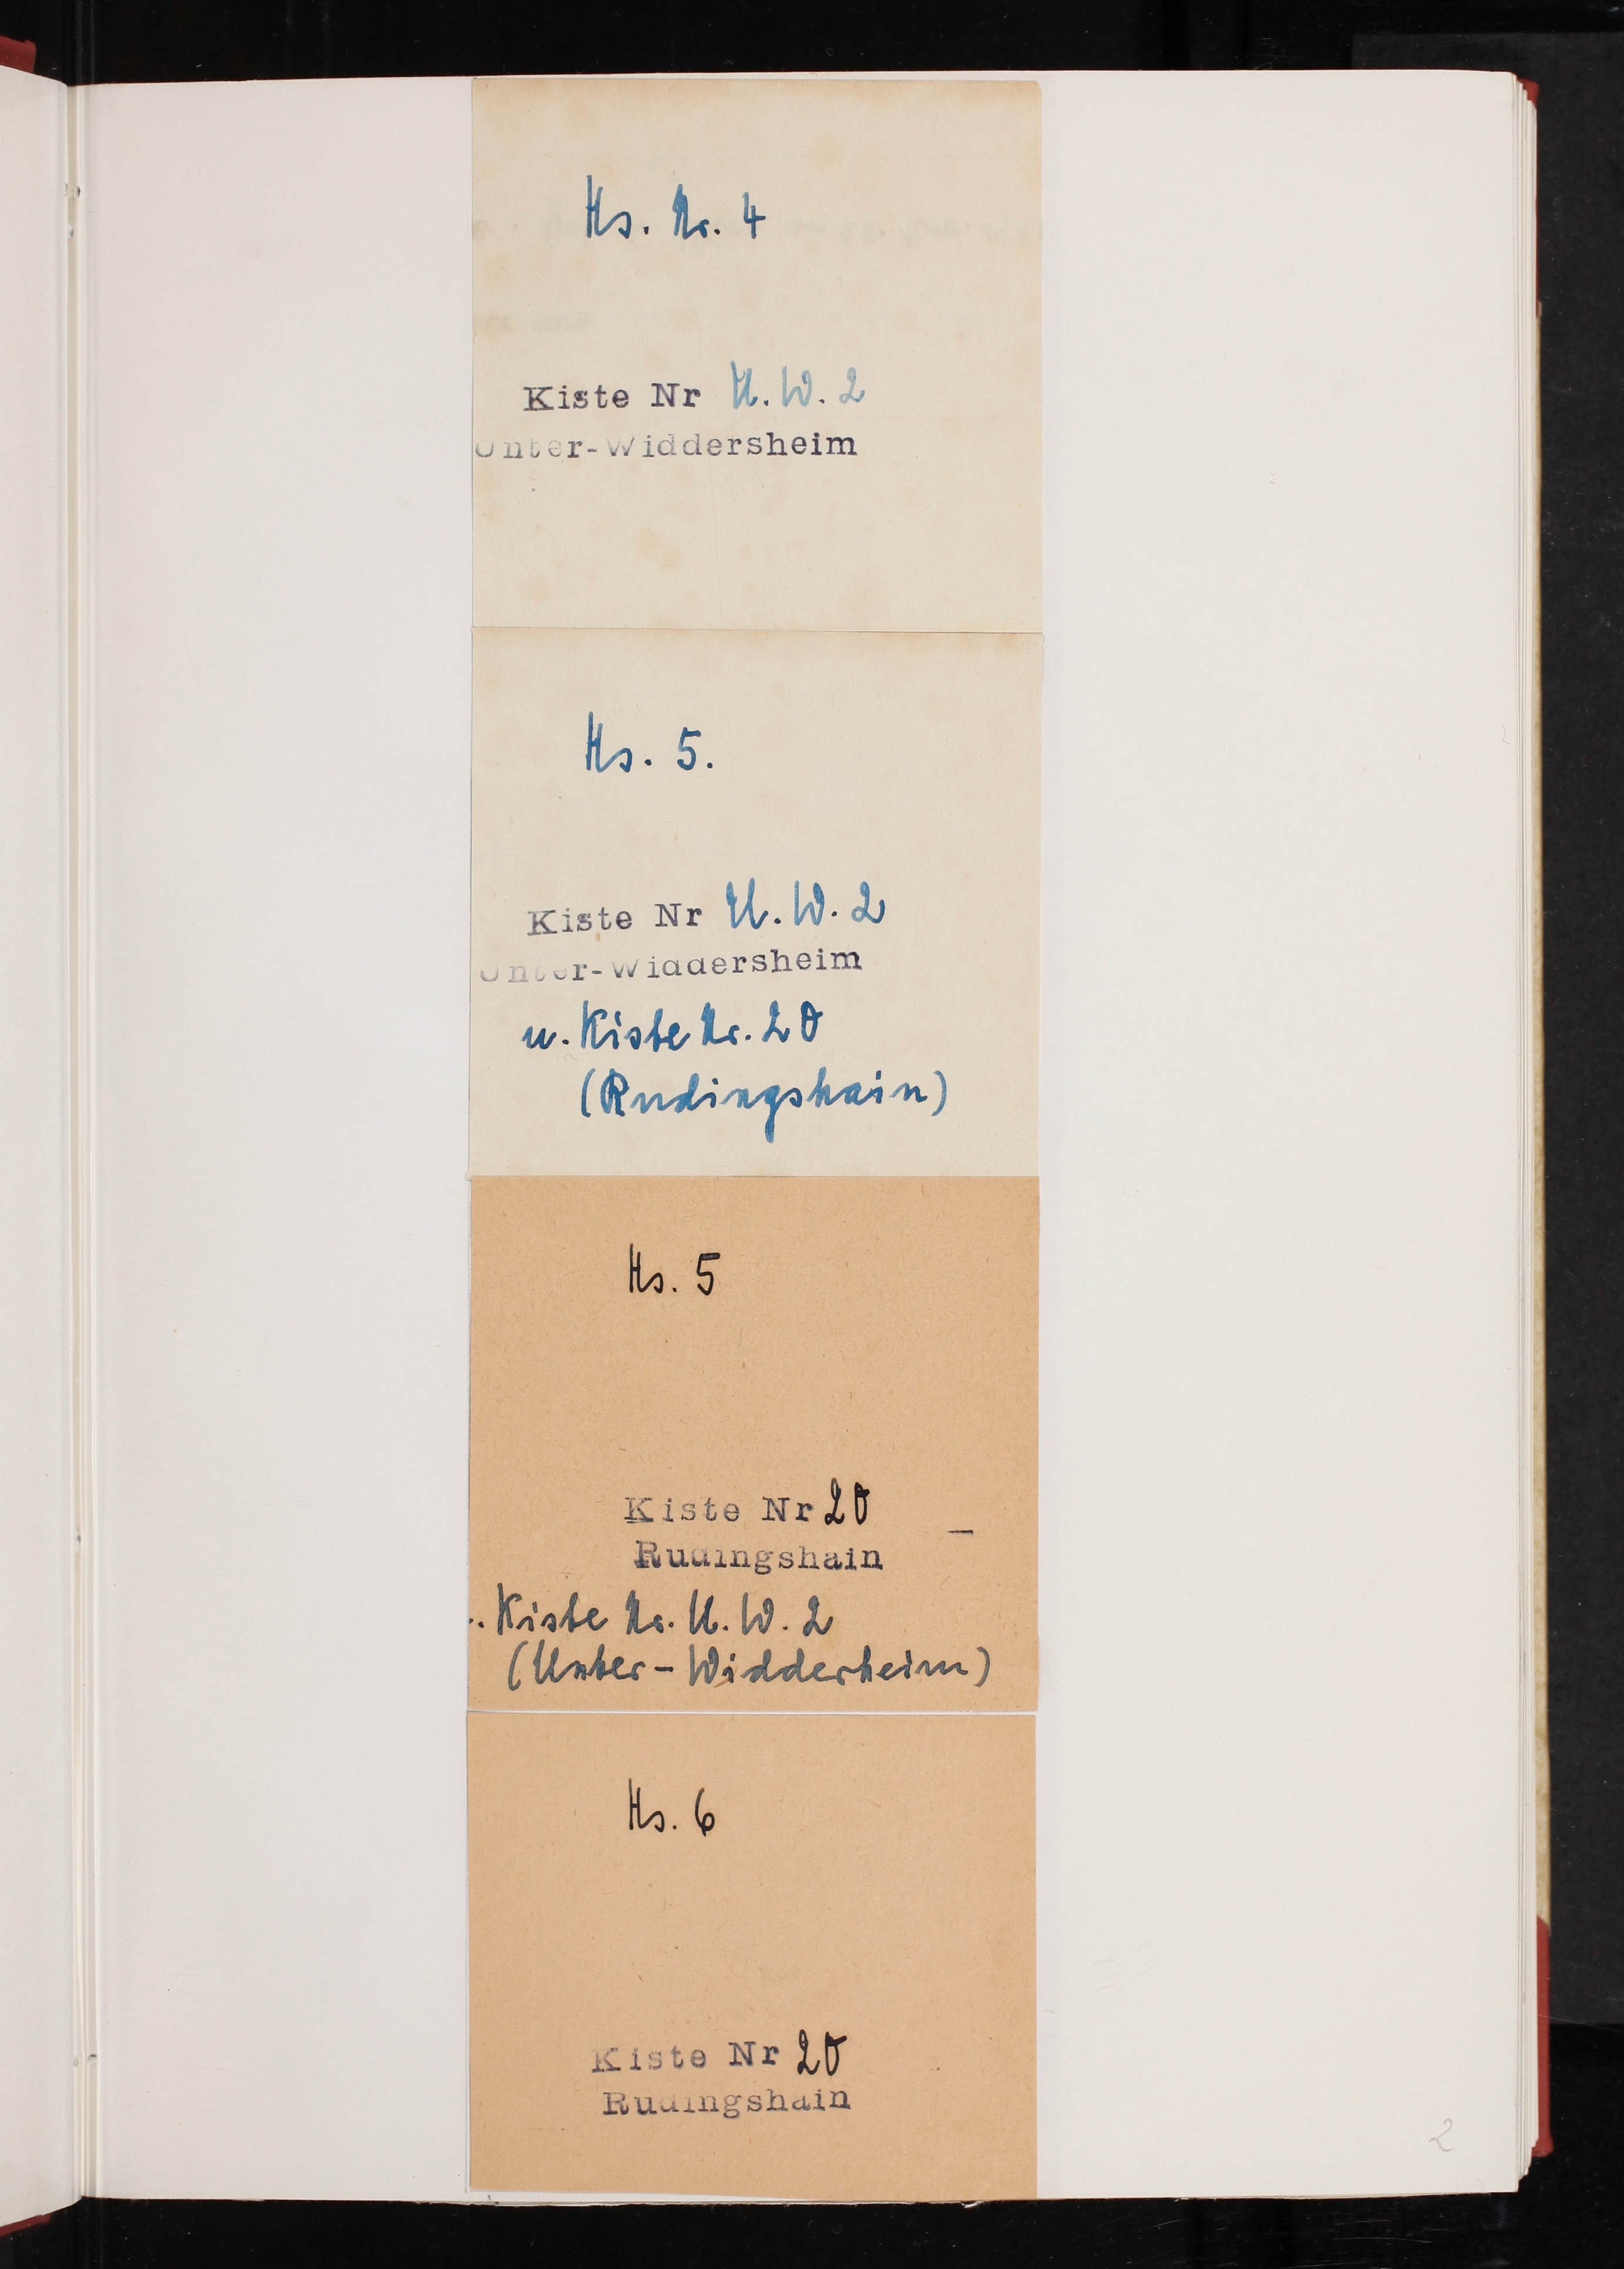 Hs. Nr. 4
Kiste Nr U. W. 2
Unter-Widdersheim
Hs. 5.
Kiste Nr U. W. 2
Unter-Widdersheim
u. Kiste Nr. 20
(Rudingshain)
Hs. 5
Kiste Nr 20
Rudingshain
. Kiste Nr. U. W. 2
(Unter-Widderheim)
Hs. 6
Kiste Nr 20
Rudingshain
2